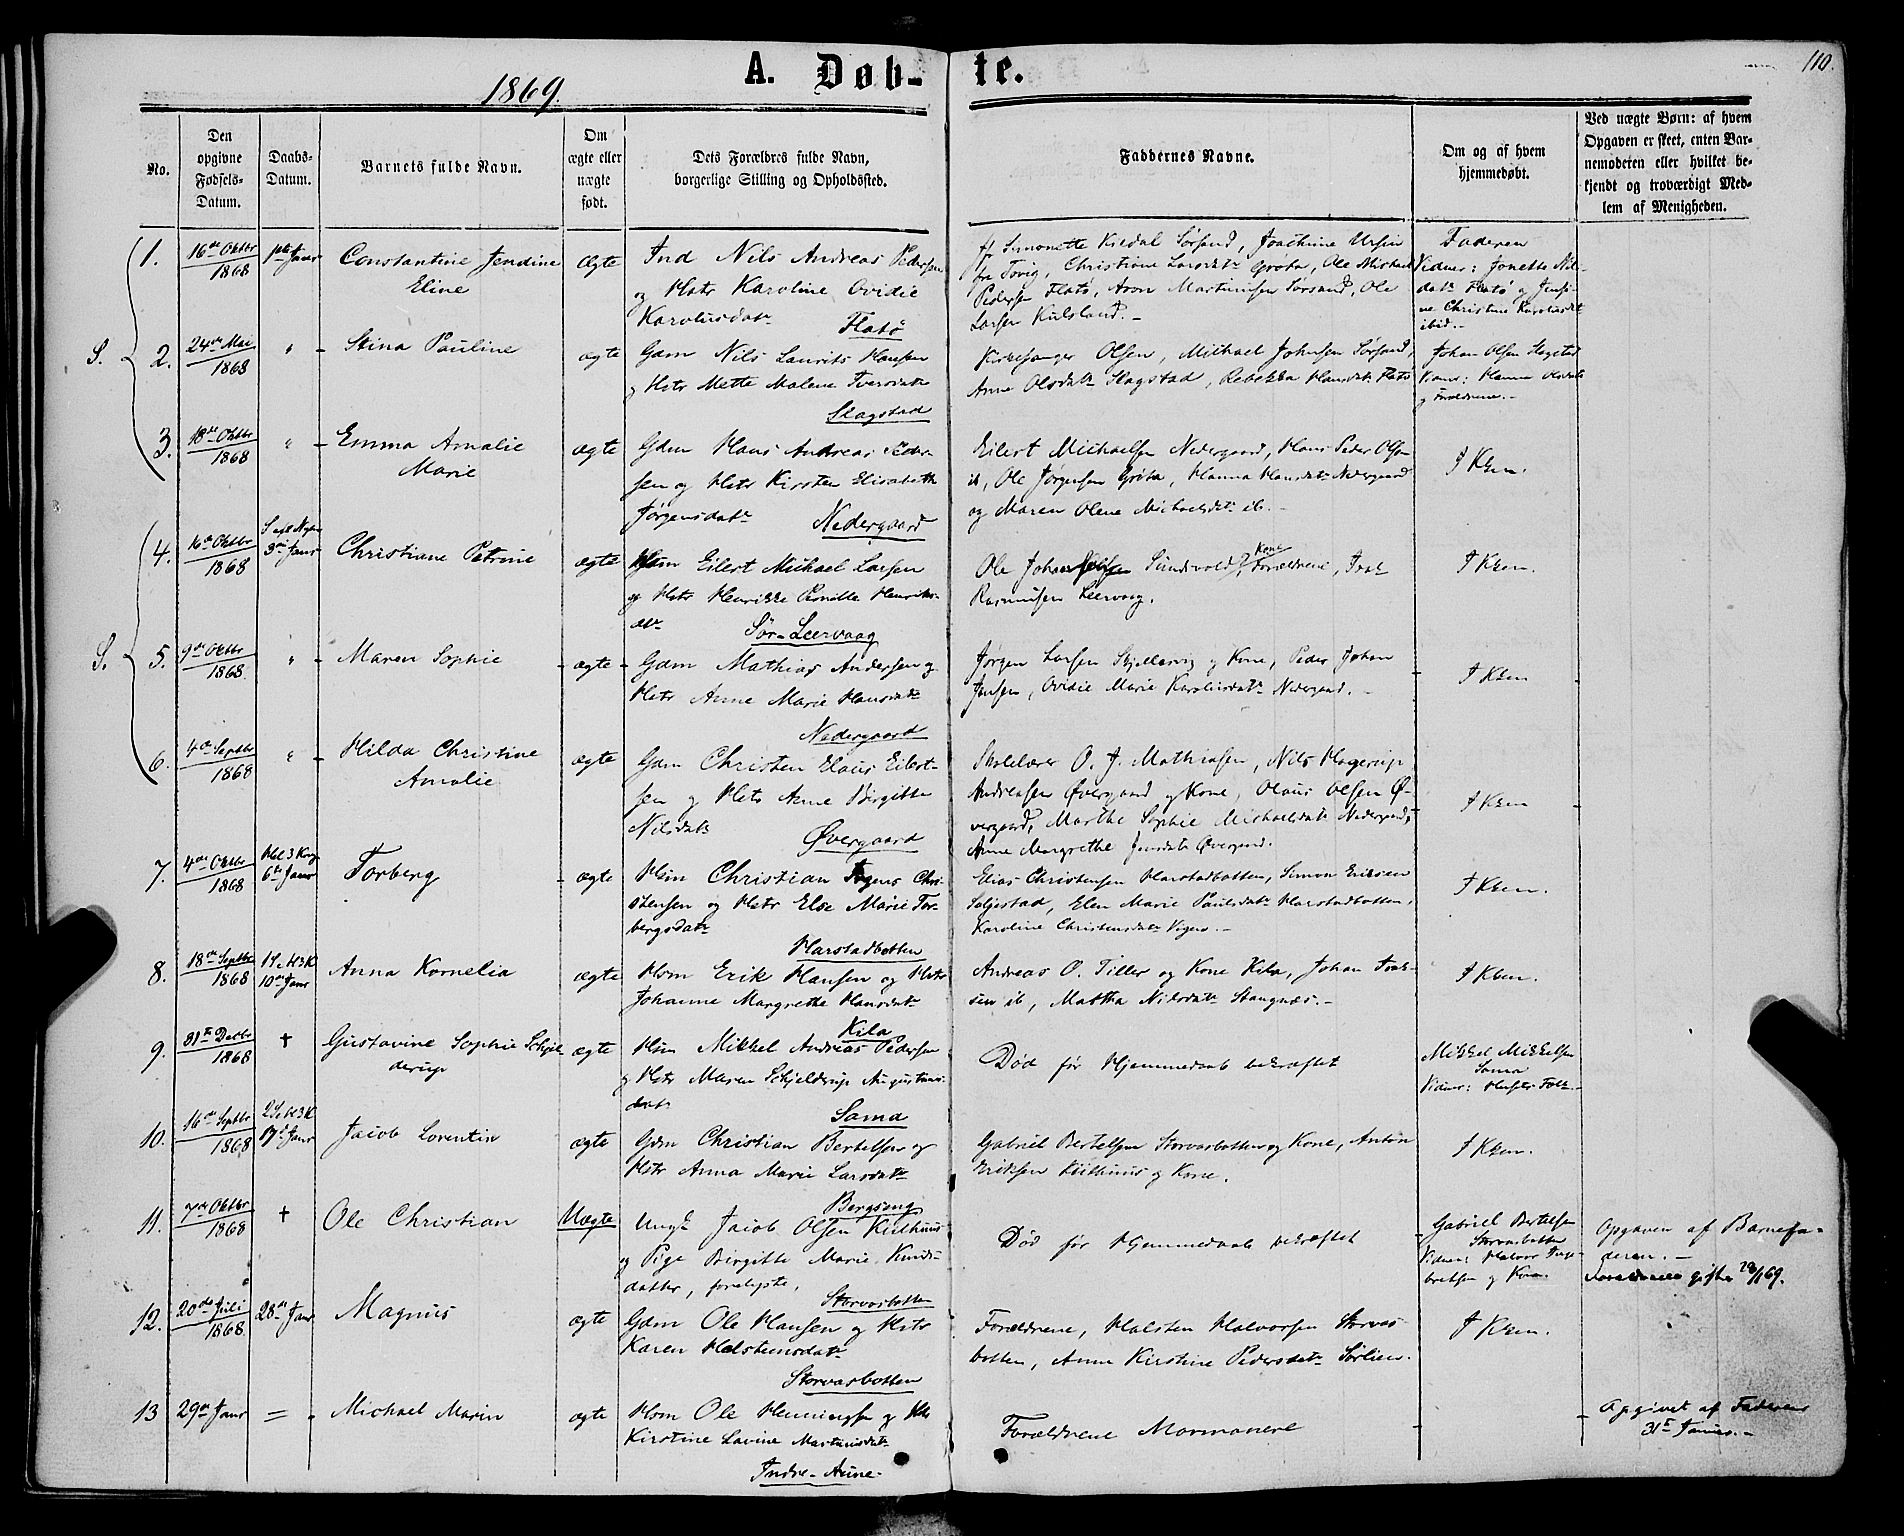 110.
A. Døb- te.
1869.
No.
Den opgivne Fødsels-Datum.
Daabs-Datum.
Barnets fulde Navn.
Om ægte eller uægte født.
Dets Forældres fulde Navn, borgerlige Stilling og Opholdssted.
Faddernes Navne.
Om og af hvem hjemmedøbt.
Ved uægte Børn: af hvem Opgaven er skeet, enten Barnemoderen eller hvilket bekjendt og troværdigt Medlem af Menigheden.
1. 16de Oktbr 1868 1ste Janr Constantine Jendine Eline ægte
Ind Nils Andreas Pedersen
og Hstr Karoline Ovidie
Karolusdatr Flatø
Simonette Kildal Sørsand, Joachime Ursin
fra Tovig, Christiane Larsdatr Grøtø, Ole Michael
Pedersen Flatø, Aron Martinusen Sørsand, Ole
Larsen Kulsland.
Faderen
Vidner: Jonette Nilsdatr Flatø og
Christine Karolusdtr
ibid.
S.
2. 24de Mai 1868 " Stina Pauline ægte
Gdm Nils Laurits Hansen
og Hstr Mette Malene Iversdatr
Slagstad
Kirkesanger Olsen, Michael Johnsen Sørsand,
Anne Olsdatr Slagstad, Rebekka Hansdatr Flatø
Johan Olsen Slagstad
Vidner: Hanna Olsdatr
og Forældrene.
3. 18de Oktbr 1868 " Emma Amalie Marie ægte
Gdm Hans Andreas Peder-
sen og Hstr Kirsten Elisabeth
Jørgensdatr Nedergaard
Eilert Michaelsen Nedergaard, Hans Peder Olsen
ib, Ole Jørgensen Grøtø, Hanna Hansdatr Nedergaard
og Maren Olene Michaelsdatr ib.
I Ksen.
4. 16de Oktbr 1868 S. e. Nytaar 3die Janr Christiane Petrine ægte
Eilert Michael Larsen
og Hstr Henrikke Pernille Henriks-
datr Sør-Leervaag
Ole Sundsvold, Kone, Forældrene, Isak
Rasmusen Leervaag.
I Ksen.
S.
5. 9de Oktbr 1868 " Maren Sophie ægte
Gdm Mathias Andersen og
Hstr Anne Marie Hansdatr
Nedergaard
Jørgen Larsen og Kone, Peder Johan
Jensen, Ovidie Marie Karolusdatr Nedergaard.
I Ksen
6. 4de Septbr 1868 " Hilda Christine Amalie ægte
Gdm Christen Elaus Eilert-
sen og Hstr Anne Birgitte
Nilsdatr Øvergaard
Skolelærer O. J. Mathiasen, Nils Hagerup
Andreasen Øvergaard og Kone, Olaus Olsen Ø-
vergaard, Marthe Sophie Michaelsdatr Nedergaard,
Anne Margrethe Jensdatr Øvergaard.
I Ksen
7. 4de Oktbr 1868 Hel. 3 Kong. 6te Janr Torberg ægte
Hsm Christian Chri-
stensen og Hstr Else Marie Tor-
bergsdatr Harstadbotten
Elias Christensen Harstadbotten, Simon Eriksen
Seljestad, Elen Marie Paulsdatr Harstadbotten,
Karoline Christensdatr
I Ksen.
8. 18de Septbr 1868 1 S. e. H 3 K 10de Janr Anna Kornelia ægte
Hsm Erik Hansen og Hstr
Johanne Margrethe Hansdatr
Kila
Andreas O. Tiller og Kone Kila, Johan Isak-
sen ib, Martha Nilsdatr Stangnæs.
I Ksen.
9. 31te Decbr 1868 † Gustavine Sophie Schjelderup ægte
Hsm Mikkel Andreas Pedersen
og Hstr Maren Schjelderup Augustinus-
datr Sama
Død før Hjemmedaab bekræftet
Mikkel Mikkelsen
Sama
10. 16de Septbr 1868 2 S. e. H 3 K 17de Janr Jacob Lorentin ægte
Gdm Christian Bertelsen og
Hstr Anna Marie Larsdatr
Bergseng
Gabriel Bertelsen Storvasbotten og Kone, Anton
Eriksen Kilhuus og Kone.
I Ksen.
11. 7de Oktbr 1868 † Ole Christian Uægte
Ungk Jacob Olsen Kilhuus
og Pige Birgitte Marie Knuds-
datter, forelskte. Storvasbotten
Død før Hjemmedaab bekræftet
Gabriel Bertelsen
Storvasbotten
og Kone.
Opgaven af Barnefa-
deren.
Forældrene gifte
12. 20de Juli 1868 28de Janr Magnus ægte
Gdm Ole Hansen og Hstr
Karen Halstensdatr
Storvasbotten
Forældrene, Halsten Halvorsen Storvas
botten, Anne Kirstine Pedersdatr Sørlien.
I Ksen.
13 29de Janr = Michael Marin ægte
Hsm Ole Henningsen og Hstr
Kirstine Lavine Martinusdatr
Indre-Aune
Forældrene Mormonere
Opgivet af Faderen
31te Januar.